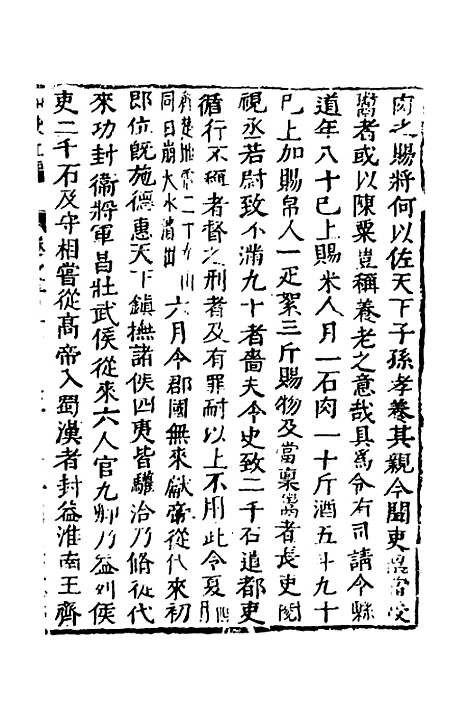 肉之賜將何以佐天下子孫孝養其親今聞吏稟當受
鬻者或以陳粟豈稱養老之意哉具爲令有司請令縣
道年八十已上賜米人月一石肉二十斤酒五斗九十
已上加賜帛人二疋絮三斤賜物及當稟鬻者長吏閱
視丞若尉致不滿九十者嗇夫令史致二千石遣都吏
循行不稱者督之刑者及有罪耐以上不用此令夏四月
齊楚地震二十九山
同日崩大水潰出六月令郡國無來獻帝從代來初
即位旣施德惠天下鎭撫諸侯四夷皆驩洽乃脩從代
來功封衞將軍昌壯武侯從來六人官九卿乃益列侯
吏二千石及守相嘗從高帝入蜀漢者封益淮南王齊